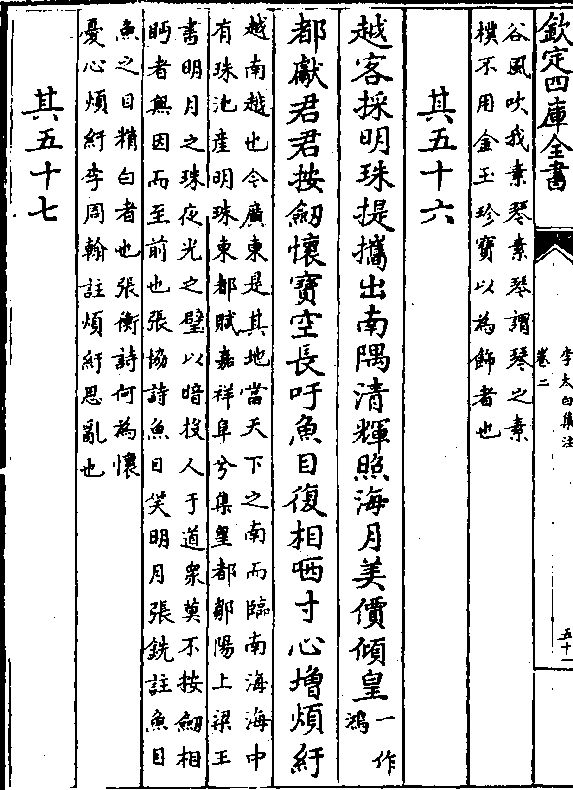 欽定四庫全書
李太白集注
卷二
五十二
谷風吹我素琴素琴謂琴之素
樸不用金玉珍寶以為飾者也
其五十六
越客採明珠提攜出南隅清輝照海月美價傾皇一作鴻
都獻君君按劒懷寶空長吁魚目復相哂寸心增煩紆
越南越也今廣東是其地當天下之南而臨南海海中
有珠池産明珠東都賦嘉祥阜兮集皇都鄒陽上梁王
書明月之珠夜光之璧以暗投人于道衆莫不按劒相
眄者無因而至前也張協詩魚目笑明月張銑註魚目
魚之目精白者也張衡詩何為懷
憂心煩紆李周翰註煩紆思亂也
其五十七